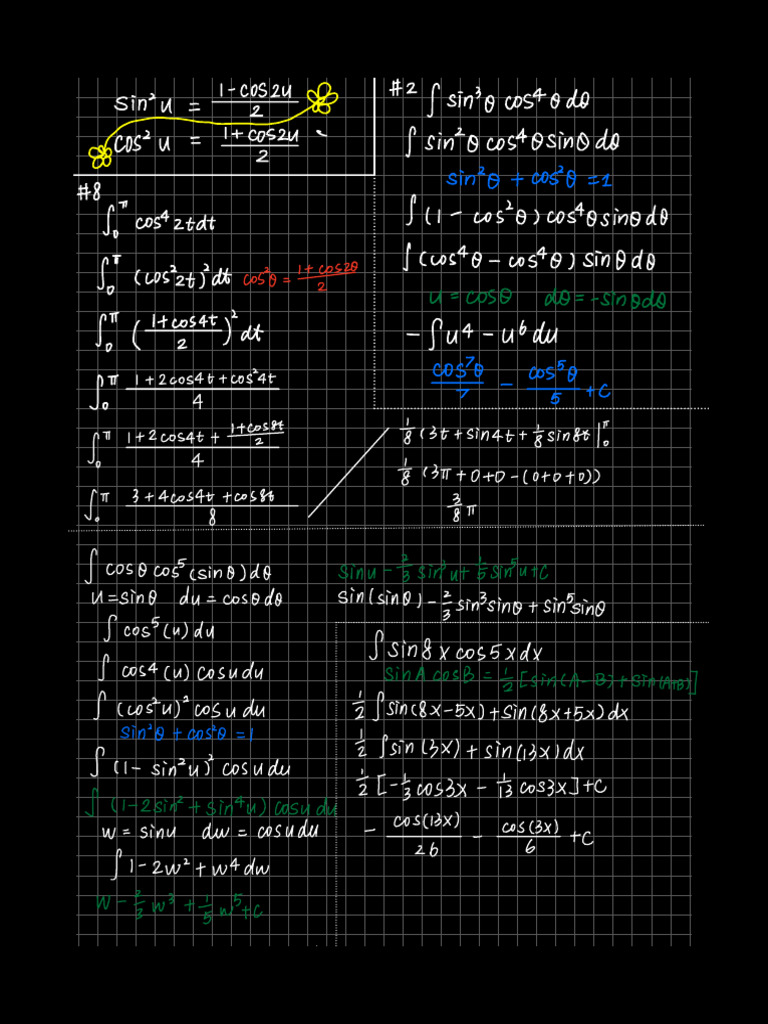 sin²u = (1-cos2u)/2
cos²u = (1+cos2u)/2
#8
∫₀^π cos⁴2tdt
∫₀^π (cos²2t)²dt cos²θ = (1+cos2θ)/2
∫₀^π ((1+cos4t)/2)² dt
∫₀^π (1+2cos4t+cos²4t)/4
∫₀^π (1+2cos4t+(1+cos8t)/2)/4
∫₀^π (3+4cos4t+cos8t)/8
#2 ∫sin³θcos⁴θdθ
∫sin²θcos⁴θsinθdθ
sin²θ+cos²θ=1
∫(1-cos²θ)cos⁴θsinθdθ
∫(cos⁴θ-cos⁴θ)sinθdθ
u=cosθ dθ=-sinθdθ
-∫u⁴-u⁶du
cos⁷θ/7 - cos⁵θ/5 +c
1/8 (3t+sin4t+1/8 sin8t|₀^π
1/8 (3π+0+0-(0+0+0))
3/8 π
∫cosθcos⁵(sinθ)dθ
u=sinθ du=cosθdθ
∫cos⁵(u)du
∫cos4(u)cosudu
∫(cos²u)²cosudu
sin²θ+cos²θ=1
∫(1-sin²u)²cosudu
∫(1-2sin²+sin⁴u)cosudu
w=sinu dw=cosudu
∫1-2w²+w⁴dw
w-2/3 w³+1/5 w⁵+c
sinu-2/3 sin³u+1/5 sin⁵u+c
sin(sinθ)-2/3 sin³sinθ+sin⁵sinθ
∫sin8xcos5xdx
sinAcosB=1/2[sin(A-B)+sin(A+B)]
1/2 ∫sin(8x-5x)+sin(8x+5x)dx
1/2 ∫sin(3x)+sin(13x)dx
1/2 [-1/3 cos3x-1/13 cos3x]+c
- cos(13x)/26 - cos(3x)/6 +c